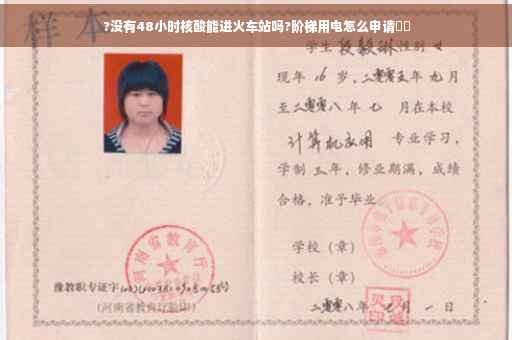 ?没有48小时核酸能进火车站吗?阶梯用电怎么申请
样本
学生 段毅琳 性别 女
现年 16 岁，二零零五年 九月
至二零零八年 七 月在本校
计算机应用 专业学习，
学制 三 年，修业期满，成绩
合格，准予毕业
学校（章）
校长（章）
二零零八年 七 月 一 日
河南省教育厅
豫教职专证字
（河南省教育厅验印）